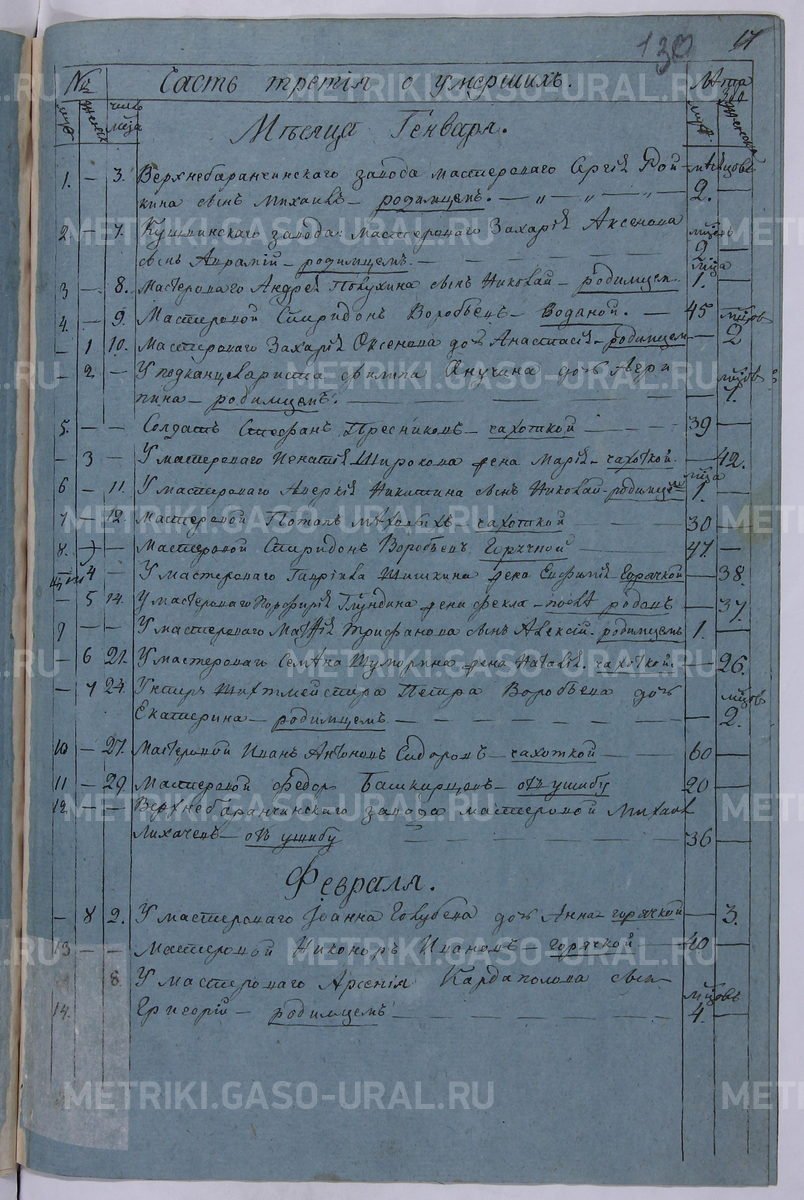 130
Часть третія о умершихъ.
Мѣсяца Генваря.
1. — 3. Верхнебаранчинскаго завода мастероваго Сергія
сынъ Михаилъ — родимцемъ. 2.
2. — 7. Кушвинскаго завода: мастероваго Захарія Аксенова
сынъ Аврамій — родимцемъ. 2
3 — 8. Мастероваго Андрея Попухина сынъ Николай — родимцем. 1.
4. — 9. Мастеровой Спиридонъ Воробьевъ — Водяной. — 45
— 1 10. Мастероваго Захарія Оксенова дочь Анастасія — родимцем — 2
— 2. — У подканцеляриста Филипа Кнучина дочь Агри
пина — родимцемъ. 1.
5. — — Солдатъ Стефанъ Пресниковъ — чахоткой — 39 —
— 3 — У мастероваго Игнатія Широкова жена Марія — чахоткой. — 42.
6 — 11. У мастероваго Аверкія Никитина сынъ Николай — родимцем 1. —
7 — 12. Мастеровой Потапъ чахоткой — 30
8. — Мастеровой Спиридонъ Воробьевъ Горячкой — 47. —
4 — У мастероваго Гаврила Шишкина жена Евфимія Горячкой — 38.
— 5 14. У мастероваго Порфирія Глундина жена Фекла — послѣ родовъ — 37.
9 — — У мастероваго Матѳія Трифанова сынъ Алексій. родимцемъ 1. —
— 6 21. У мастероваго Семена Шуморина жена Наталія. чахоткой. — 26.
— 7 24. Унтеръ Шихтмейстера Петра Воробьева дочь
Екатерина — родимцемъ 2.
10 — 27. Мастеровой Иванъ Антоновъ Сидоровъ — чахоткой — 60 —
11 — 29. Мастеровой Федор Башкирцовъ — отъ ушибу 20 —
12. — — Верхнебаранчинскаго завода мастеровой Михаил
Лихачевъ — отъ ушибу 36 —
Февраля.
— 8 2. У мастероваго Іоанна Голубева дочь Анна — горячкой — 3.
13 — — Мастеровой Никоноръ Ивановъ горячкой — 40 —
8. У мастероваго Арсенія Кардаполова сынъ
14. Григорій — родимцемъ 4. —
METRIKI.GASO-URAL.RU